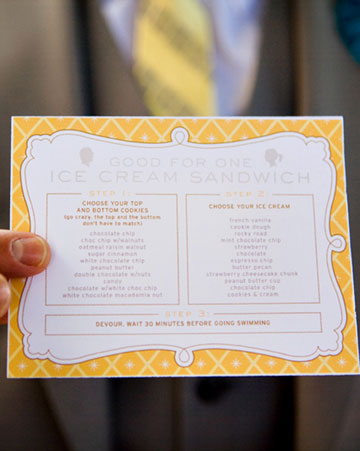 GOOD FOR ONE
ICE CREAM SANDWICH
STEP 1:
CHOOSE YOUR TOP
AND BOTTOM COOKIES
(go crazy, the top and the bottom
don't have to match!)
chocolate chip
choc chip w/walnuts
oatmeal raisin walnut
sugar cinnamon
white chocolate chip
peanut butter
double chocolate w/nuts
candy
chocolate w/white choc chip
white chocolate macadamia nut
STEP 2:
CHOOSE YOUR ICE CREAM
french vanilla
cookie dough
rocky road
mint chocolate chip
strawberry
chocolate
espresso chip
butter pecan
strawberry cheesecake chunk
peanut butter cup
chocolate chip
cookies & cream
STEP 3:
DEVOUR. WAIT 30 MINUTES BEFORE GOING SWIMMING